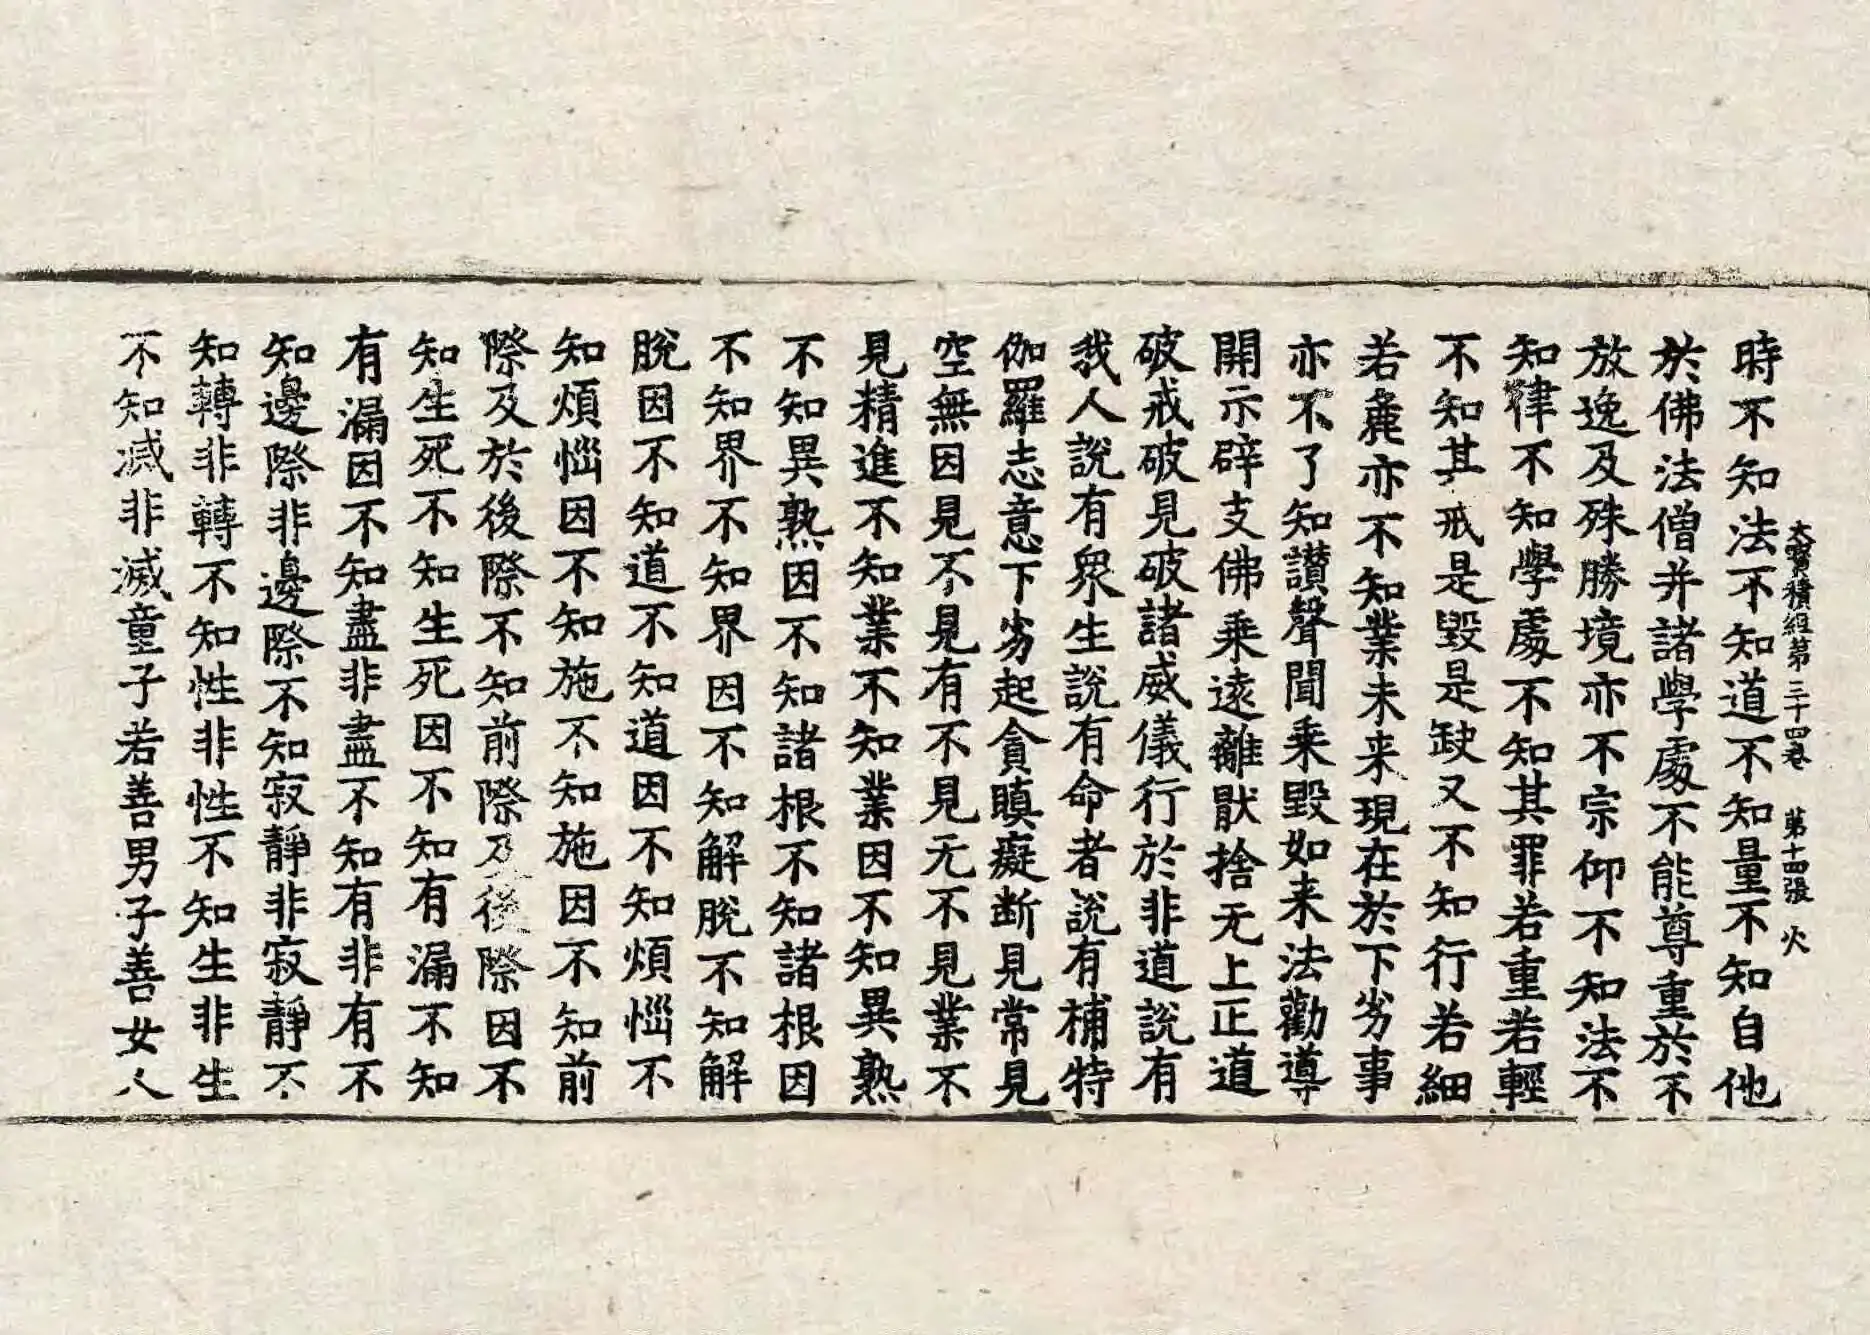 大寶積經第三十四卷 第十四張 火
時不知法不知道不知量不知自他
於佛法僧并諸學處不能尊重於不
放逸及殊勝境亦不宗仰不知法不
知律不知學處不知其罪若重若輕
不知其戒是毀是缺又不知行若細
若麁亦不知業未来現在於下劣事
亦不了知讃聲聞乗毀如来法勸導
開示辟支佛乗遠離猒捨无上正道
破戒破見破諸威儀行於非道說有
我人說有衆生說有命者說有補特
伽羅志意下劣起貪瞋癡断見常見
空無因見不見有不見无不見業不
見精進不知業不知業因不知異熟
不知異熟因不知諸根不知諸根因
不知界不知界因不知解脫不知解
脫因不知道不知道因不知煩惱不
知煩惱因不知施不知施因不知前
際及於後際不知前際及後際因不
知生死不知生死因不知有漏不知
有漏因不知盡非盡不知有非有不
知邊際非邊際不知寂靜非寂靜不
知轉非轉不知性非性不知生非生
不知滅非滅童子若善男子善女人